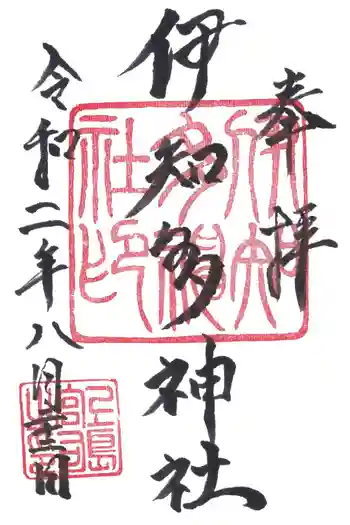 奉拝
伊知多神社
令和二年八月十三日
伊知多神社印